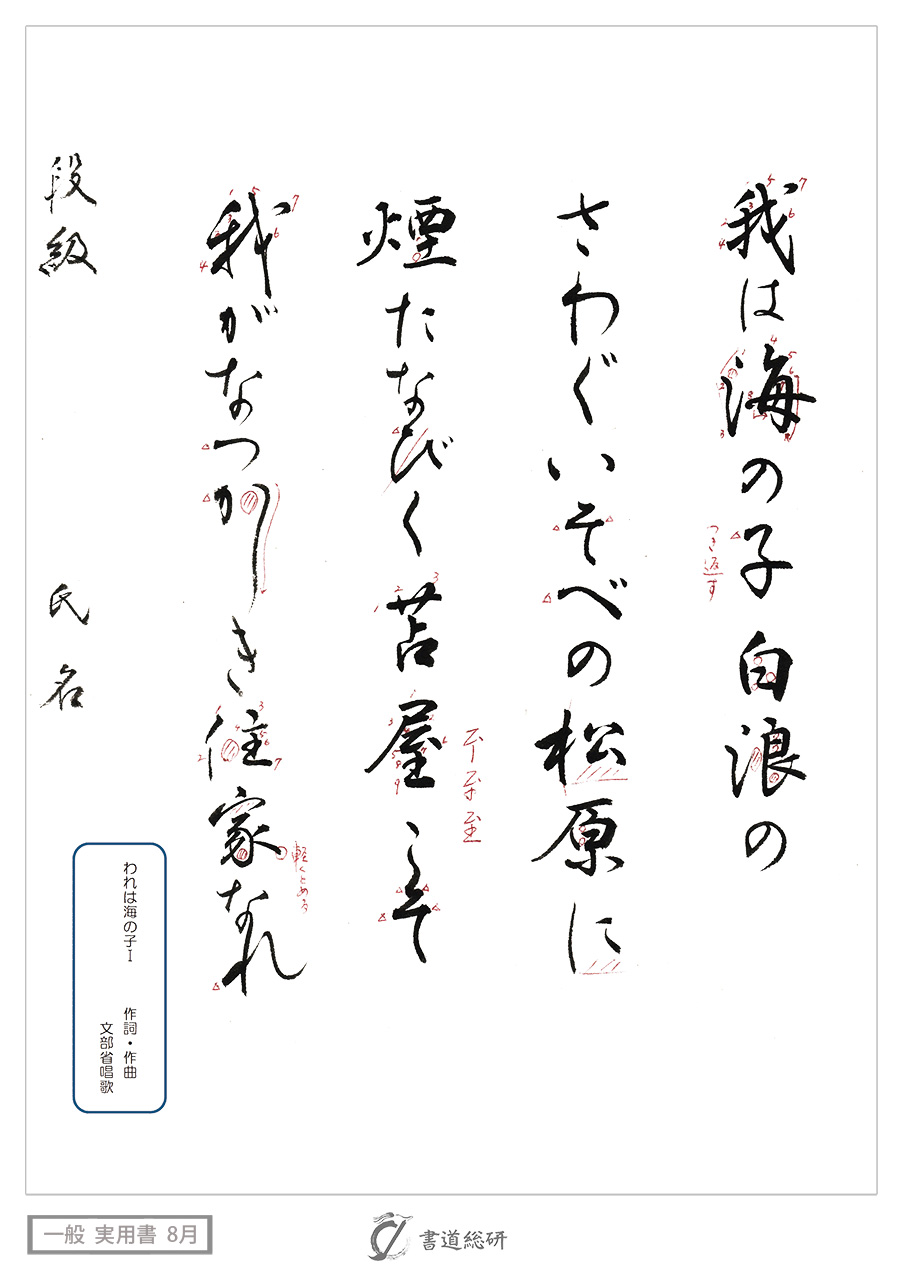 我は海の子白浪の
つき返す
さわぐいそべの松原に
煙たなびく苫屋こそ
至
我がなつかしき住家なれ
軽くとめる
段級
氏名
われは海の子Ⅰ
作詞・作曲
文部省唱歌
一般 実用書 8月
書道総研